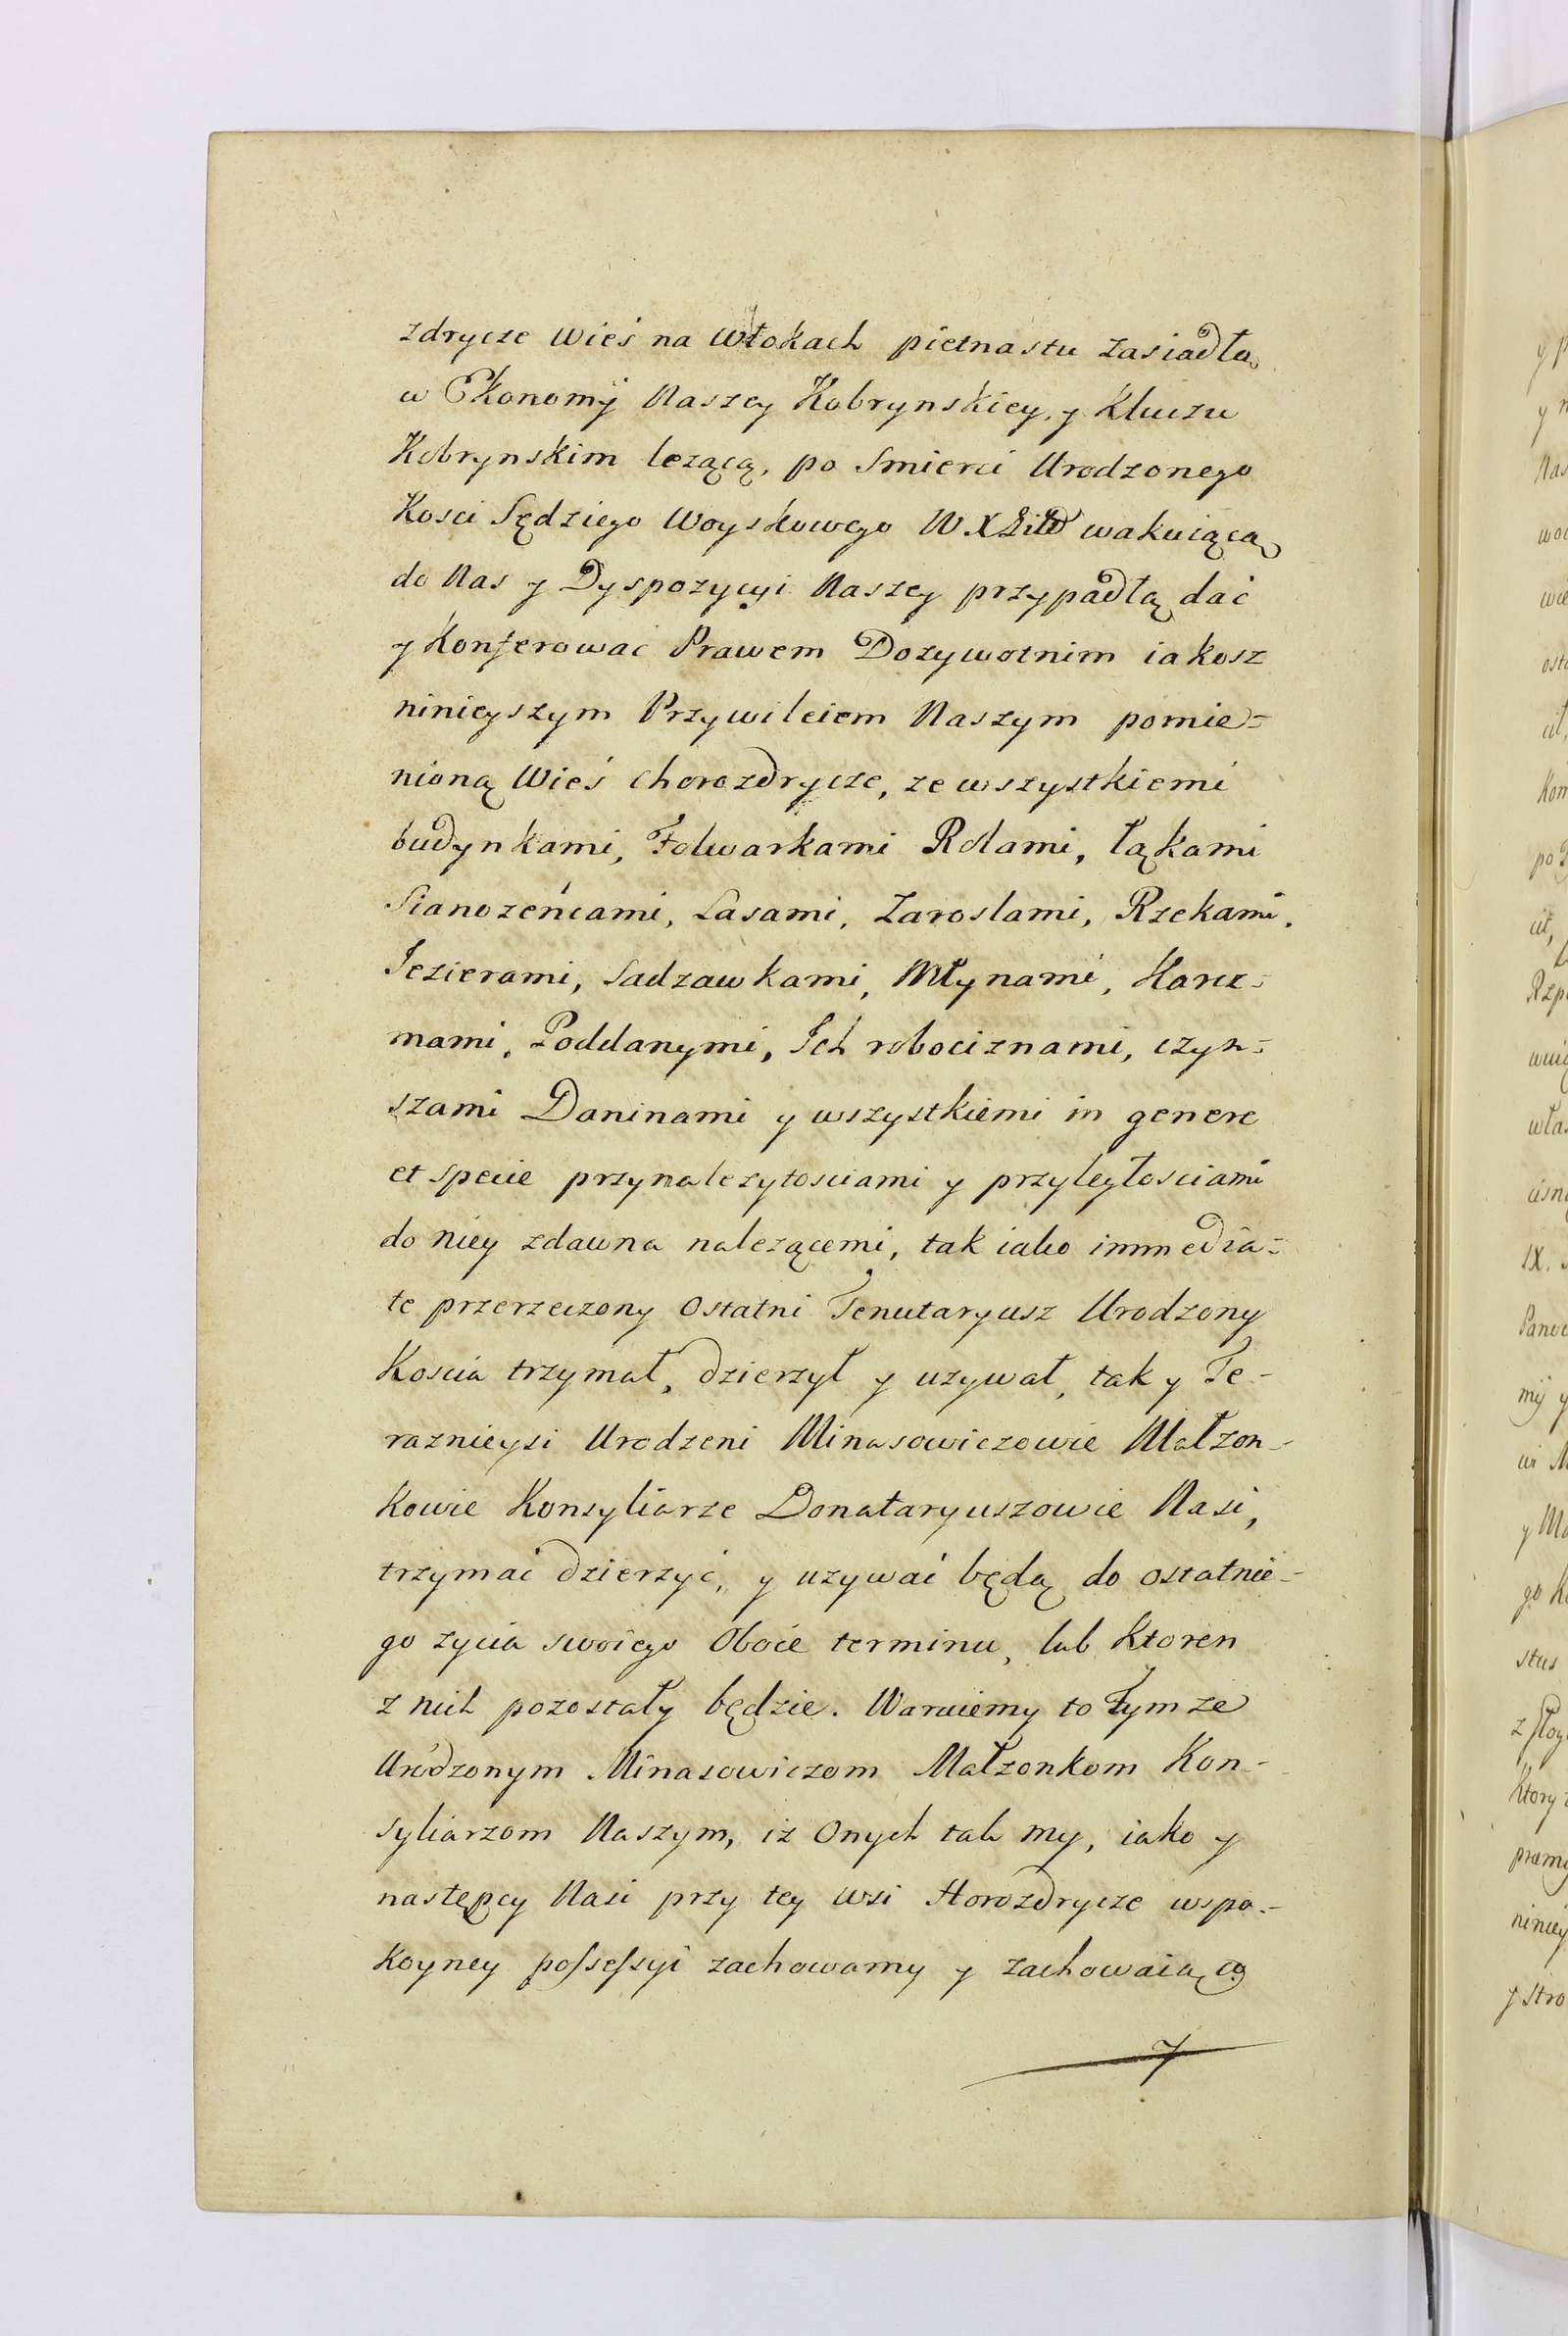 zdrycze Wieś na Włokach pietnastu Zasiadłą
w Ekonomÿ Naszey Kobrynskiey, y Kluczu
Kobrynskim lezącą, po Smierci Urodzonego
Kosci Sędziego Woyskowego W. X Litt wakuiącą
do Nas y Dyspozycyi Naszey przypadłą dać
y Konferowac Prawem Dozywotnim iakosz
ninieyszym Przywileiem Naszym pomie=
nioną Wieś Chorozdrycze, ze wszystkiemi
budynkami, Folwarkami Rolami, łąkami
Sianozeńcami, Lasami, Zaroslami, Rzekami,
Jezierami, Sadzawkami, Młynami, Karcz=
mami, Poddanymi, Ich robociznami, czyn=
szami Daninami y wszystkiemi in genere
et specie przynalezytosciami y przyległosciami
do niey zdawna nalezącemi, tak iako immedia=
te przerzeczony Ostatni Tenutaryusz Urodzony
Koscia trzymał, dzierzył y uzywał, tak y Te-
raznieysi Urodzeni Minasowiczowie Małzon-
kowie Konsyliarze Donataryuszowie Nasi,
trzymać dzierzyć, y uzywać będą do ostatnie-
go zycia swoiego Oboie terminu, lub Ktoren
z nich pozostały będzie. Waruiemy to Tymze
Urodzonym Minasowiczom Małzonkom Kon-
syliarzom Naszym, iz Onych tak my, iako y
następcy Nasi przy tey Wsi Horozdrycze wspo-
koyney possessyi zachowamy y zachowaią co